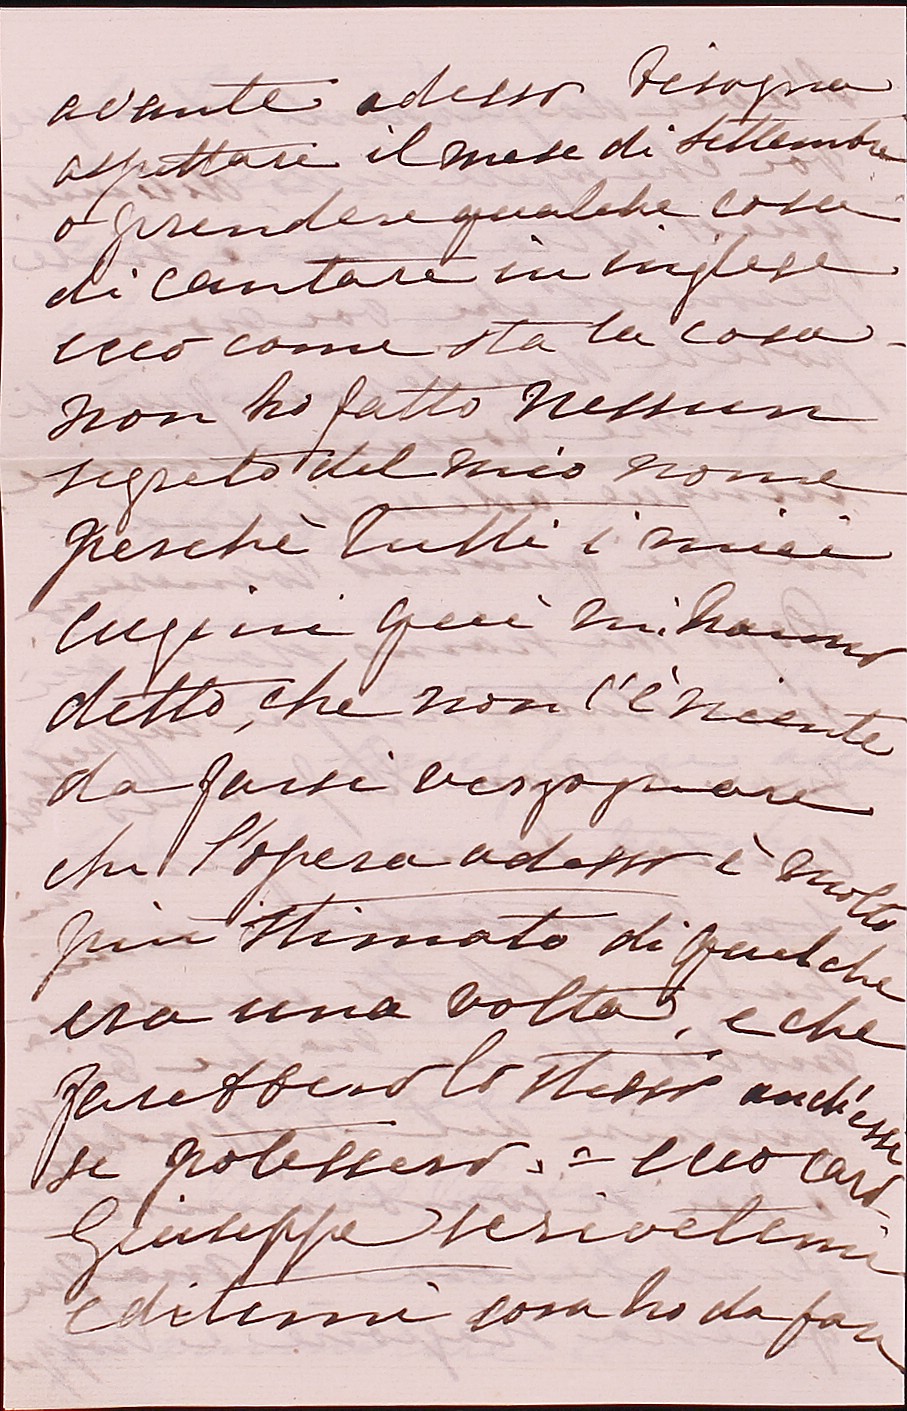 avante adesso bisogna
aspettare il mese di Settembre
o prendere qualche cosa
di cantare in inglese
ecco come sta la cosa -
non ho fatto nessun
segreto del mio nome
perchè tutti i miei
cugini quì mi hanno
detto, che non c'è niente
da farsi vergognare
che l'opera adesso è molto
più stimato di quel che
era una volta, e che
farebbero lo stesso anch'essi
se potessero. = ecco caro
Giuseppe scrivetemi
e ditemi cosa ho da fare